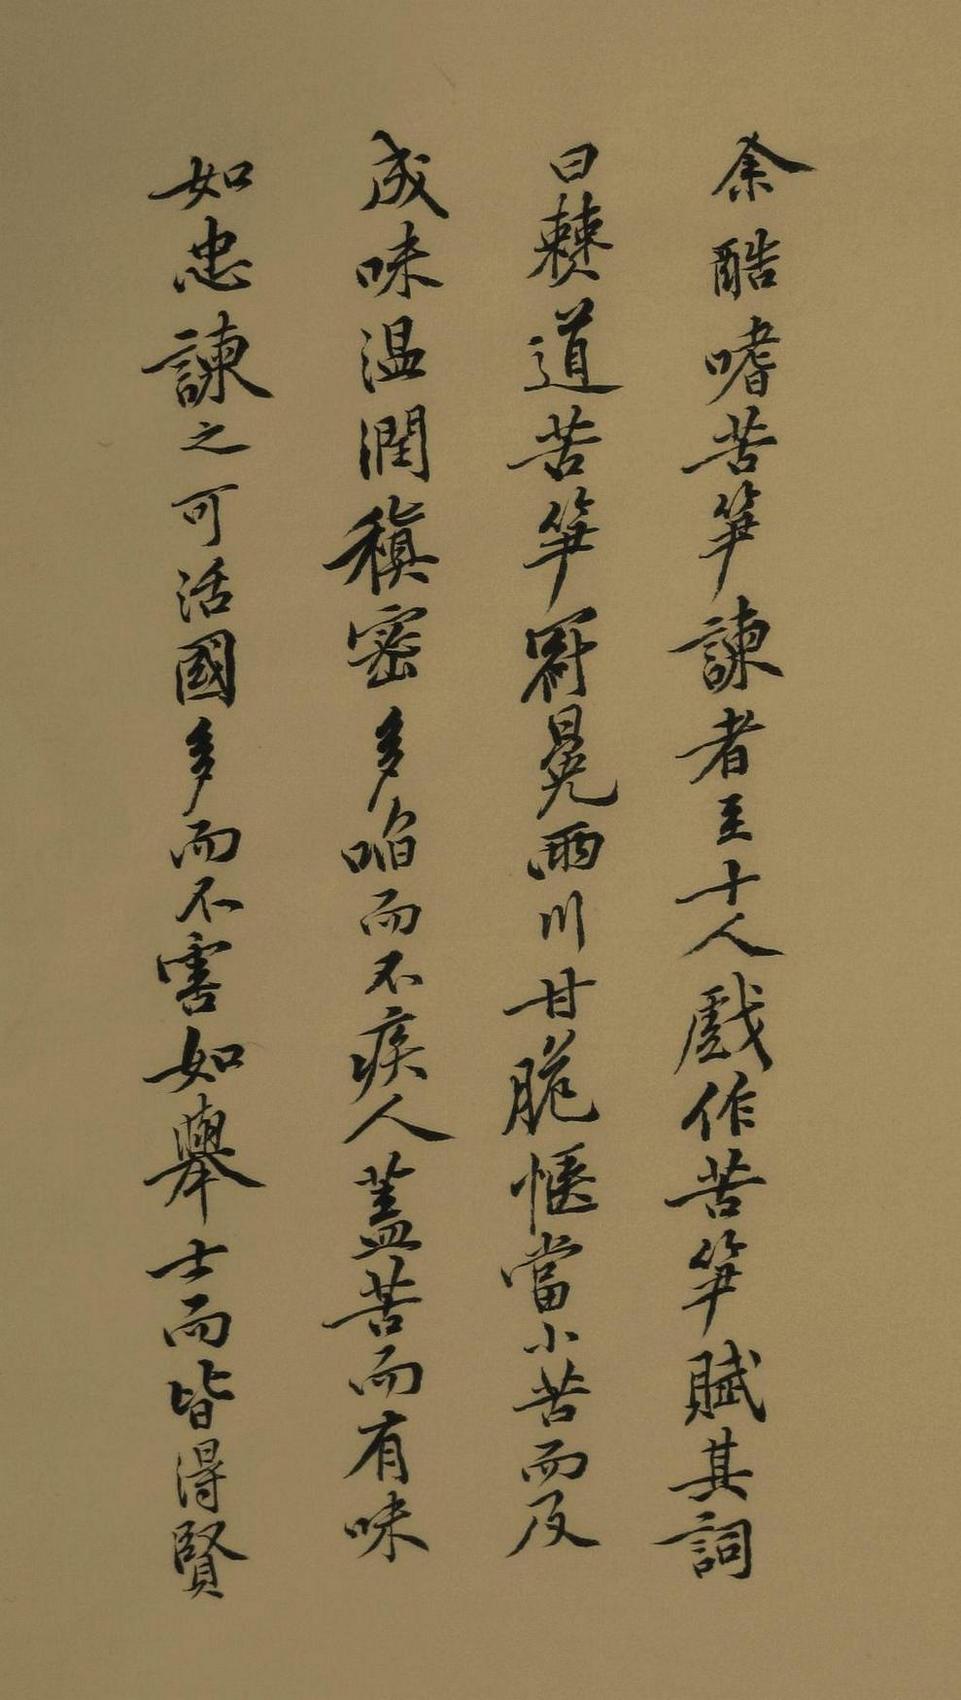 余酷嗜苦筍諫者至十人戲作苦筍賦其詞
曰僰道苦筍冠冕兩川甘脆愜當小苦而反
成味温潤稹密多啗而不疾人蓋苦而有味
如忠諫之可活國多而不害如舉士而皆得賢